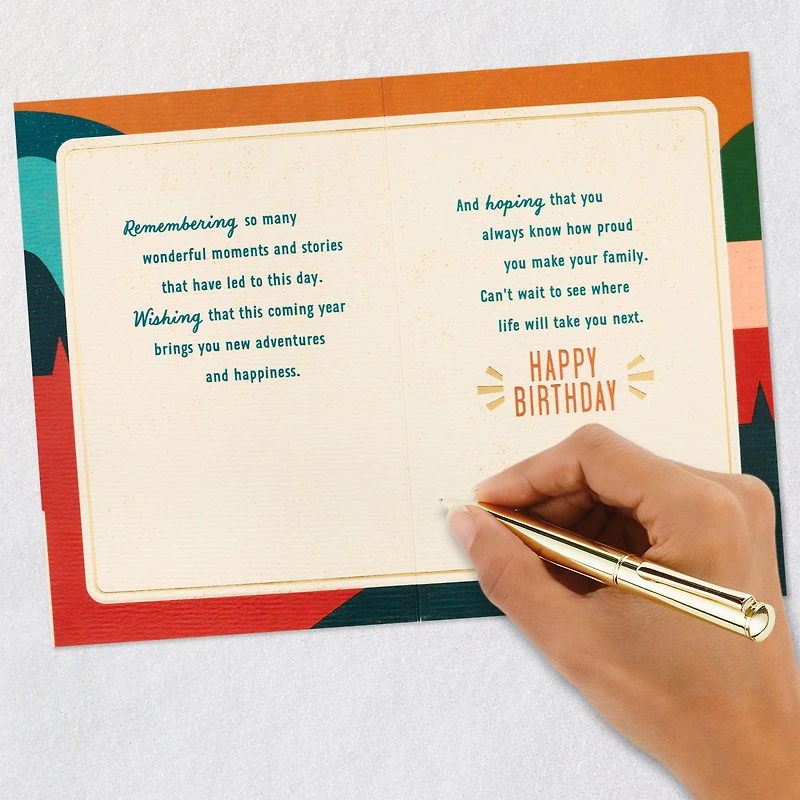 Remembering so many
wonderful moments and stories
that have led to this day.
Wishing that this coming year
brings you new adventures
and happiness.
And hoping that you
always know how proud
you make your family.
Can't wait to see where
life will take you next.
HAPPY
BIRTHDAY